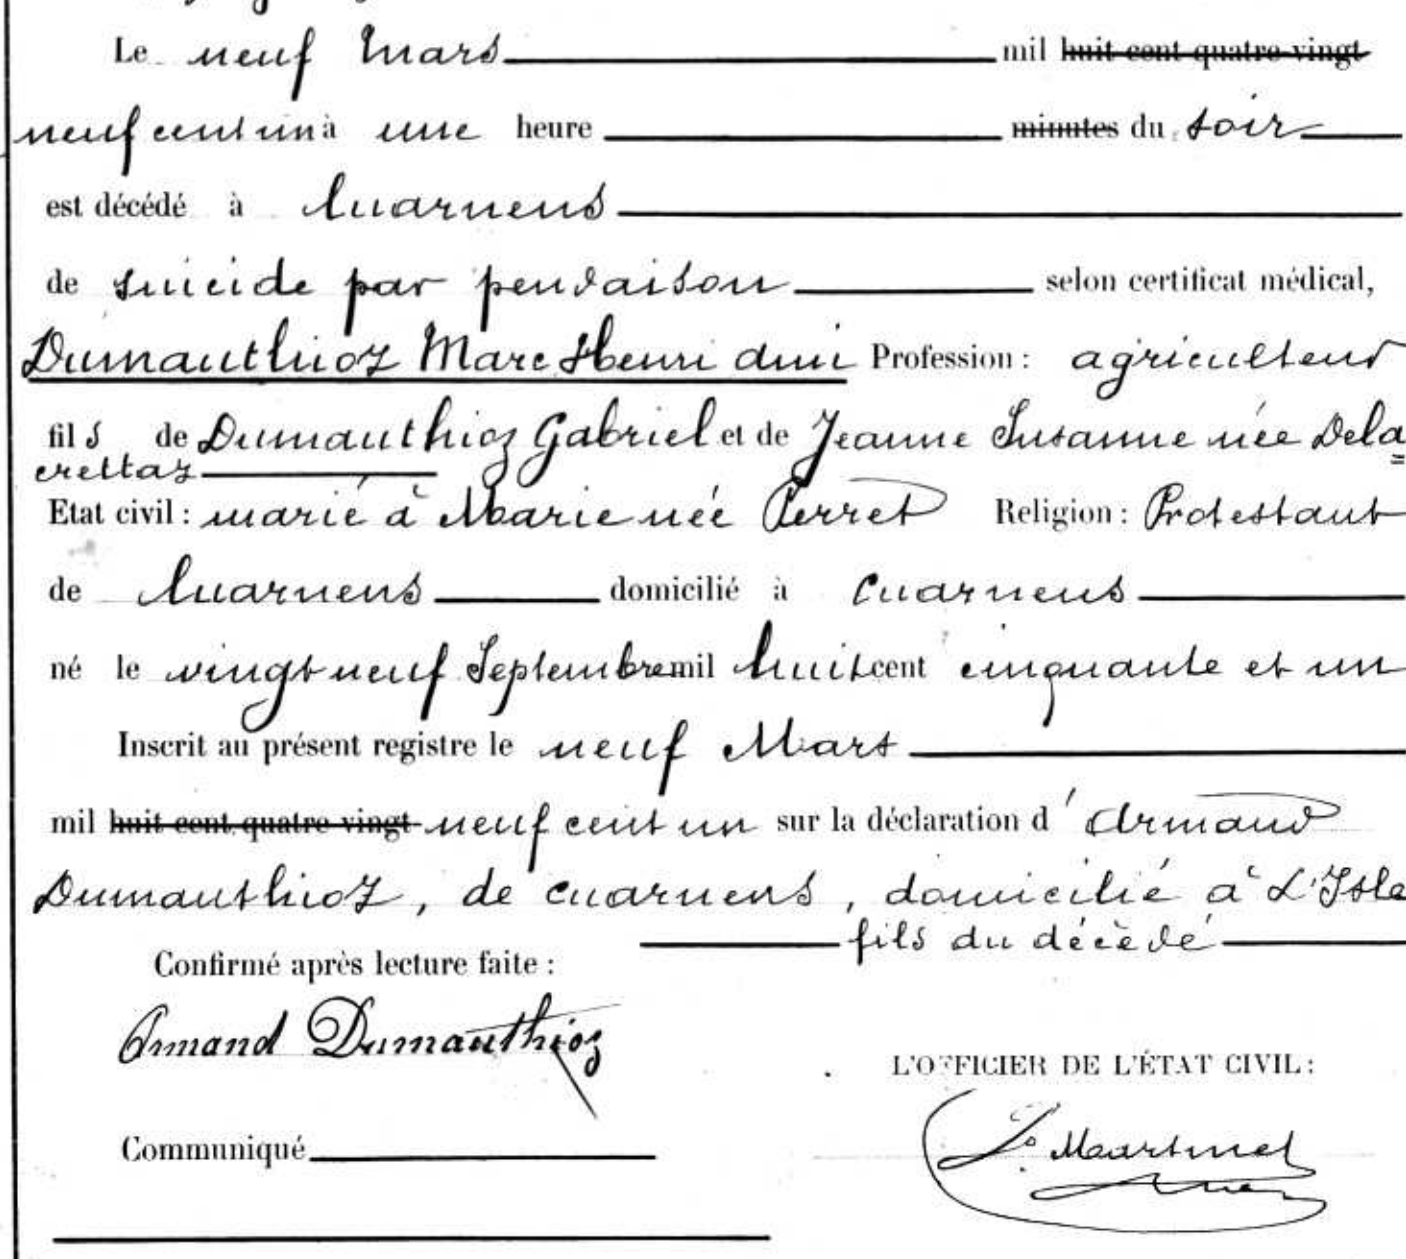 Le neuf Mars mil huit cent quatre-vingt
neuf cent un à une heure minutes du soir
est décédé à Cuarnens
de suicide par pendaison selon certificat médical,
Dumauthioz Marc Henri Ami Profession : agriculteur
fils de Dumauthioz Gabriel et de Jeanne Susanne née Dela
crettaz
Etat civil : marié à Marie née Perret Religion : Protestant
de Cuarnens domicilié à Cuarnens
né le vingt neuf Septembre mil huit cent cinquante et un
Inscrit au présent registre le neuf Mars
mil huit cent quatre-vingt neuf cent un sur la déclaration d'Armand
Dumauthioz, de Cuarnens, domicilié à L'Isle
fils du décédé
Confirmé après lecture faite :
Armand Dumauthioz
L'OFFICIER DE L'ÉTAT CIVIL :
Communiqué
Martinet